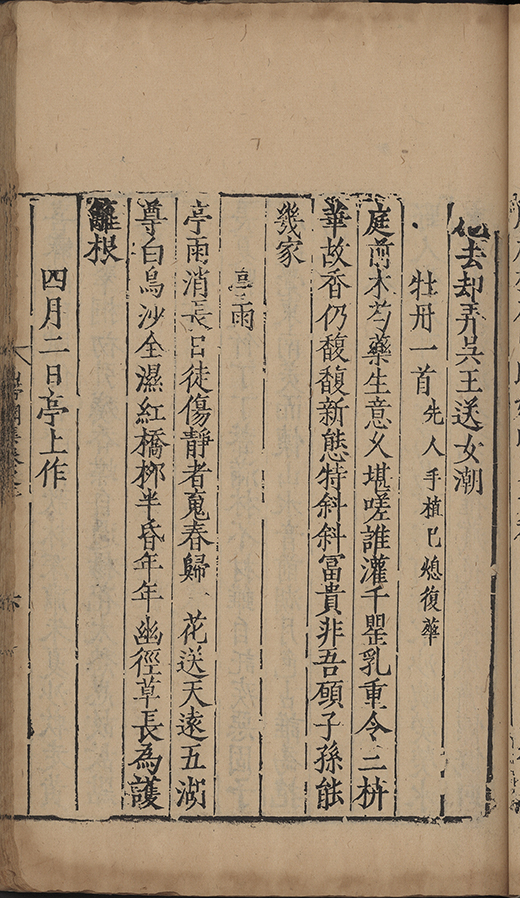 去却弄吳王送女潮
牡丹一首 先人手植已熄復華
庭前木芍藥生意乂堪嗟誰灌千罌乳重令三枿
華故香仍馥馥新態特斜斜冨貴非吾願子孫能
幾家
亭雨
亭雨消長日徒傷靜者䰟春歸 花送天遠五湖
尊白鳥沙全濕紅橋桞半昏年年幽徑草長為護
籬根
四月二日亭上作